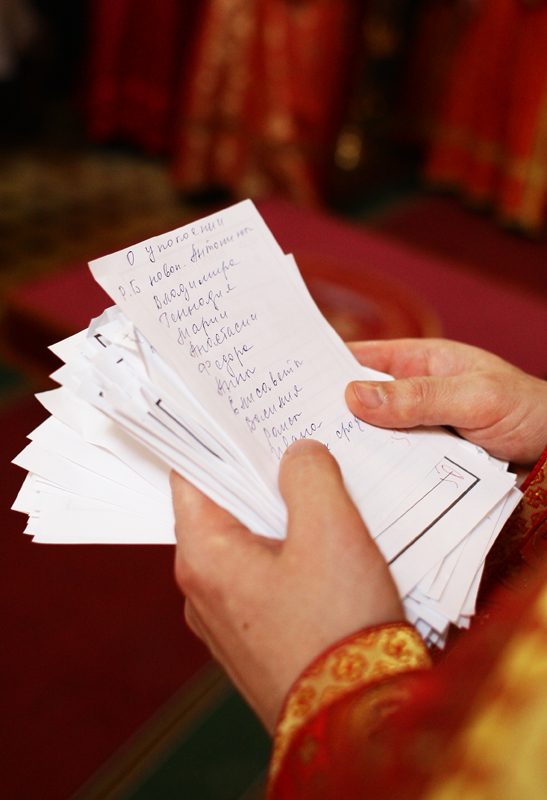 О упокоении
Р.Б новоп. Антонины
Владимира
Геннадия
Марии
Анастасии
Федора
Анны
Елисавета
Василия
Раисы
Ивана